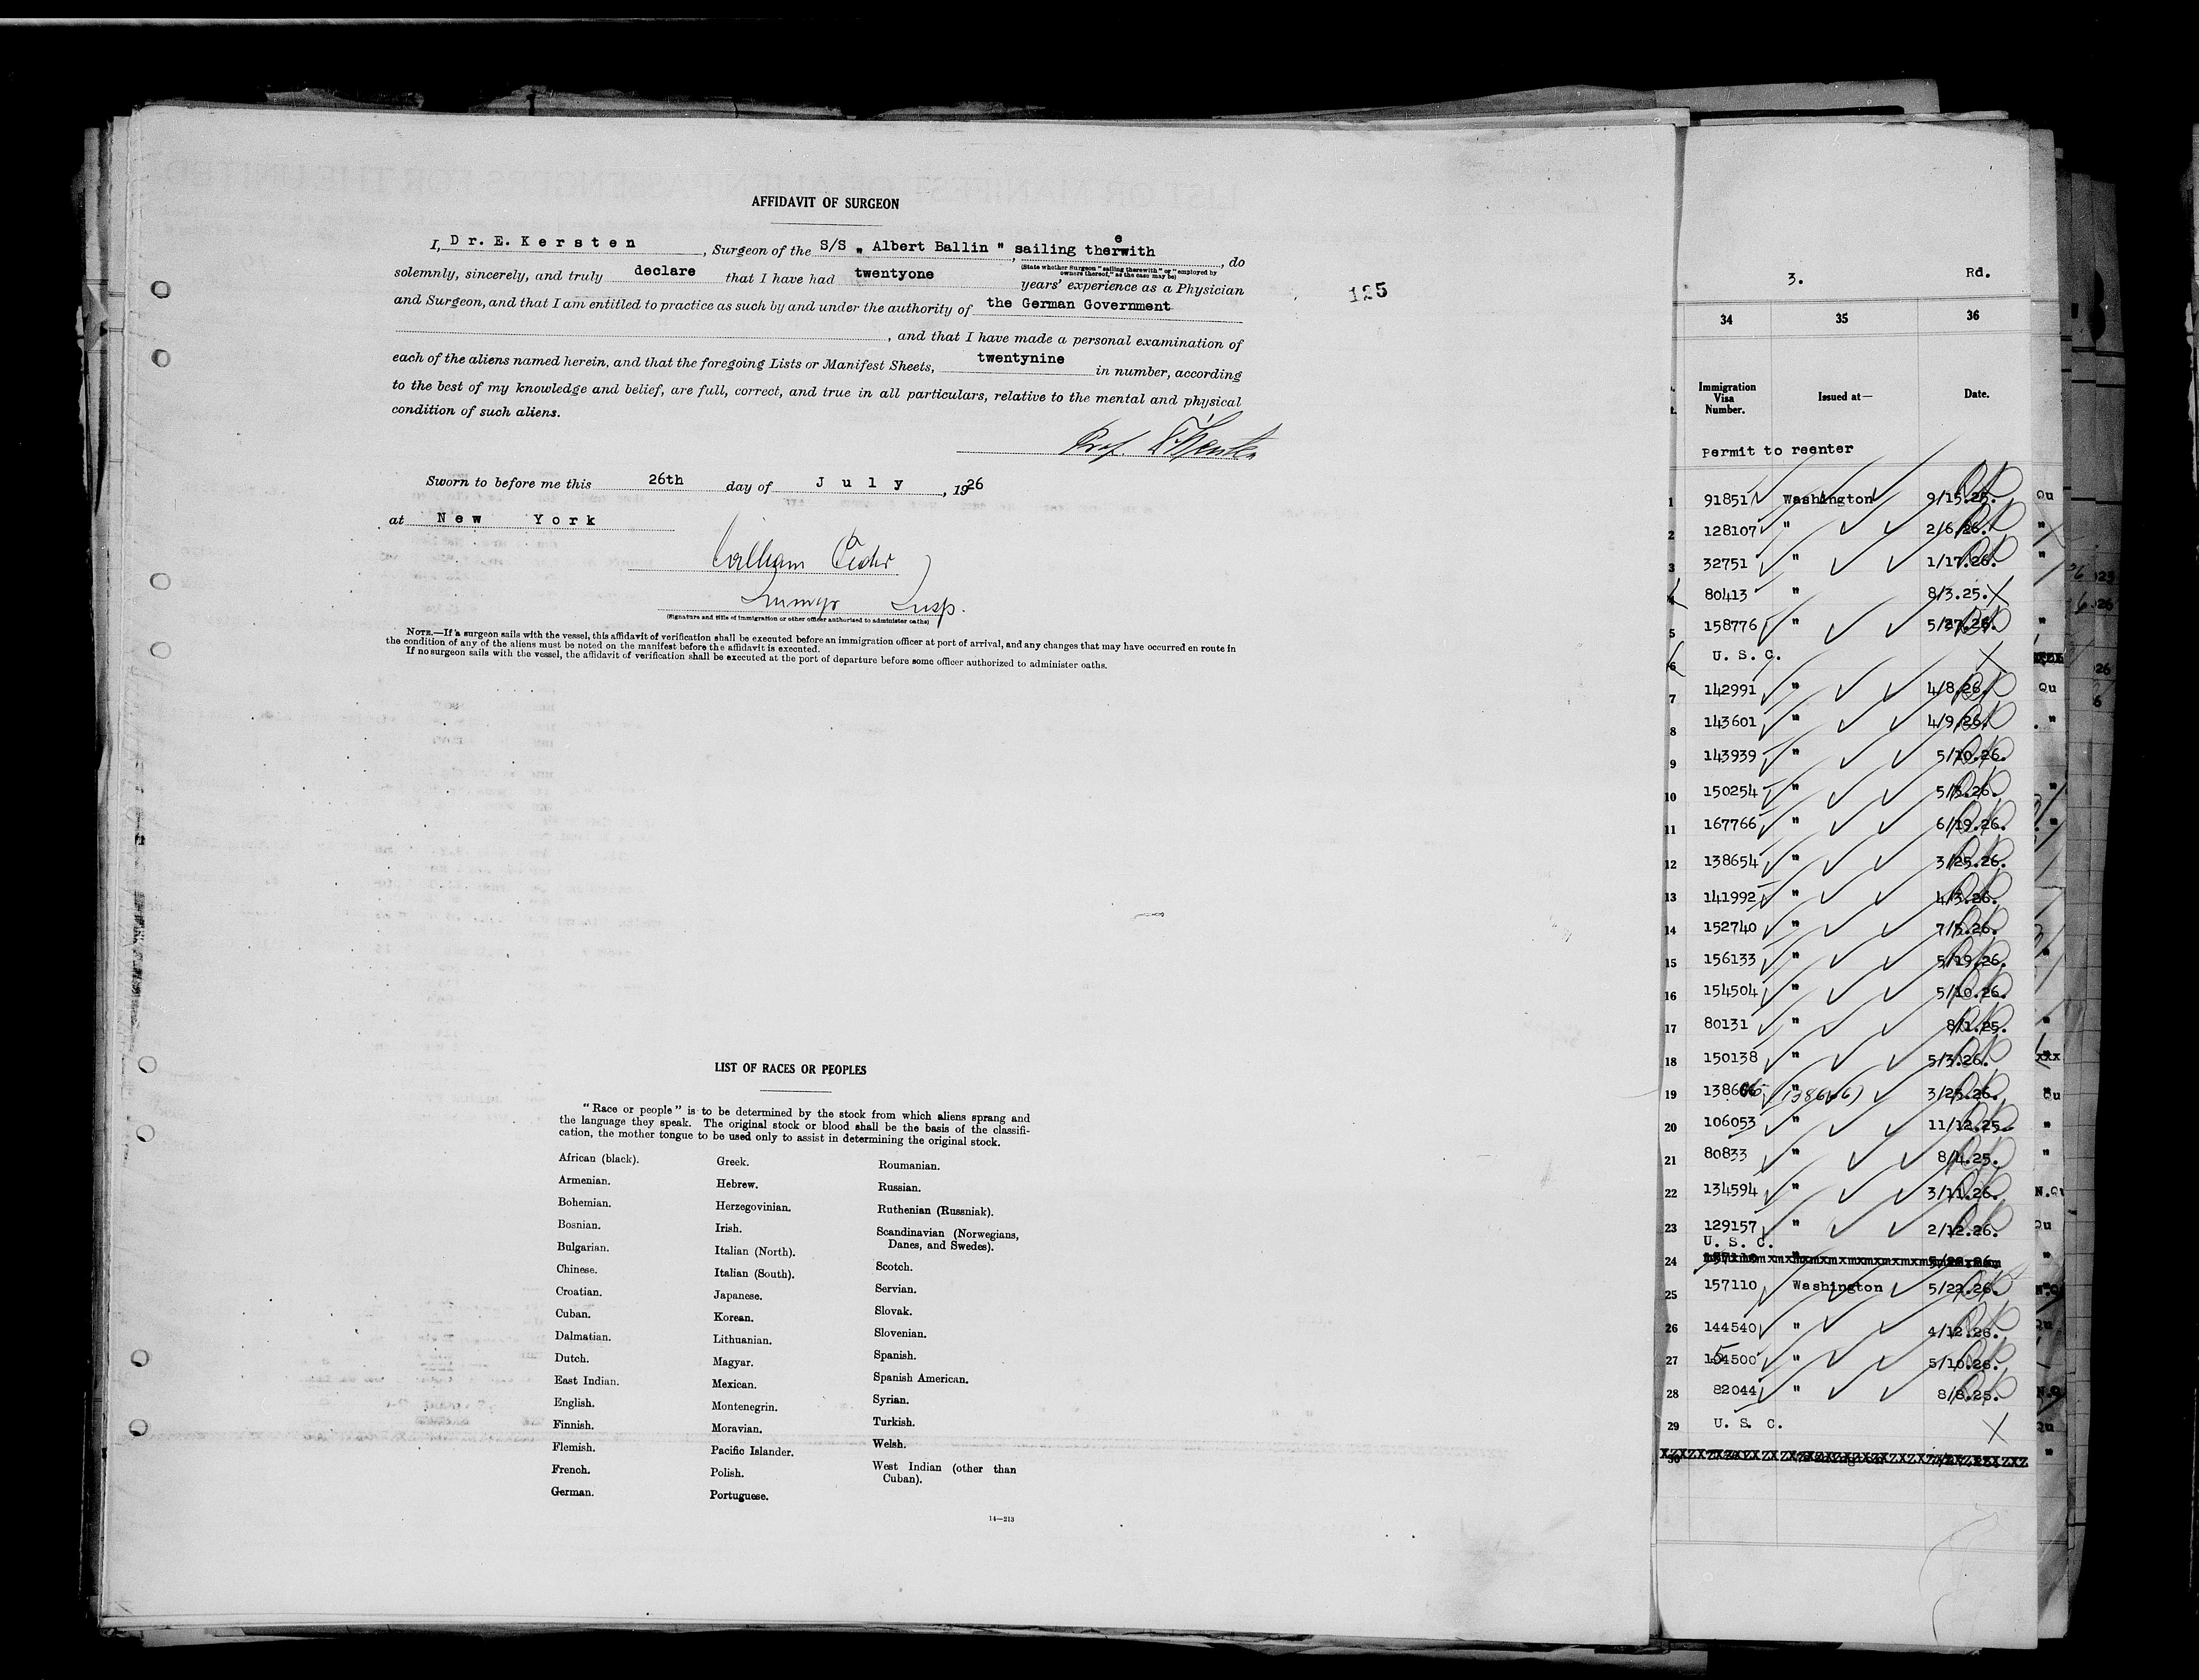 AFFIDAVIT OF SURGEON
I, Dr. E. Kersten, Surgeon of the S/S „ Albert Ballin ", sailing therewith, do
(State whether Surgeon "sailing therewith" or "employed by owners thereof," as the case may be)
solemnly, sincerely, and truly declare that I have had twentyone years' experience as a Physician
and Surgeon, and that I am entitled to practice as such by and under the authority of the German Government
, and that I have made a personal examination of
each of the aliens named herein, and that the foregoing Lists or Manifest Sheets, twentynine in number, according
to the best of my knowledge and belief, are full, correct, and true in all particulars, relative to the mental and physical
condition of such aliens.
Prof.
Sworn to before me this 26th day of July, 1926
at New York
William
Insp.
(Signature and title of immigration or other officer authorized to administer oaths)
NOTE.—If a surgeon sails with the vessel, this affidavit of verification shall be executed before an immigration officer at port of arrival, and any changes that may have occurred en route in
the condition of any of the aliens must be noted on the manifest before the affidavit is executed.
If no surgeon sails with the vessel, the affidavit of verification shall be executed at the port of departure before some officer authorized to administer oaths.
125
LIST OF RACES OR PEOPLES
"Race or people" is to be determined by the stock from which aliens sprang and
the language they speak. The original stock or blood shall be the basis of the classifi-
cation, the mother tongue to be used only to assist in determining the original stock.
African (black).
Armenian.
Bohemian.
Bosnian.
Bulgarian.
Chinese.
Croatian.
Cuban.
Dalmatian.
Dutch.
East Indian.
English.
Finnish.
Flemish.
French.
German.
Greek.
Hebrew.
Herzegovinian.
Irish.
Italian (North).
Italian (South).
Japanese.
Korean.
Lithuanian.
Magyar.
Mexican.
Montenegrin.
Moravian.
Pacific Islander.
Polish.
Portuguese.
Roumanian.
Russian.
Ruthenian (Russniak).
Scandinavian (Norwegians,
Danes, and Swedes).
Scotch.
Servian.
Slovak.
Slovenian.
Spanish.
Spanish American.
Syrian.
Turkish.
Welsh.
West Indian (other than
Cuban).
14—213
3. Rd.
34 35 36
Immigration Visa Number. Issued at— Date.
Permit to reenter
1 91851 Washington 9/15.25. Qu
2 128107 " 2/6/26. "
3 32751 " 1/17.26. "
4 80413 " 8/3.25.
5 158776 " 5/27.26. "
6 U. S. C.
7 142991 " 4/8.26. Qu
8 143601 " 4/9.26. "
9 143939 " 5/10.26.
10 150254 " 5/3.26. "
11 167766 " 6/19.26. "
12 138654 " 3/25.26.
13 141992 " 4/3.26.
14 152740 " 7/5.26.
15 156133 " 5/19.26. "
16 154504 " 5/10.26.
17 80131 " 8/1.25. "
18 150138 " 5/3.26. xxx
19 138666 " (138666) 3/25.26. Qu
20 106053 " 11/12.25. "
21 80833 " 8/4.25. "
22 134594 " 3/11.26. N.Qu
23 129157 " 2/12.26. Qu
24 U. S. C. "
25 157110 Washington 5/22.26. N.Q
26 144540 " 4/12.26. Qu
27 154500 " 5/10.26.
28 82044 " 8/8.25. N.Q
29 U. S. C. Qu
30 "